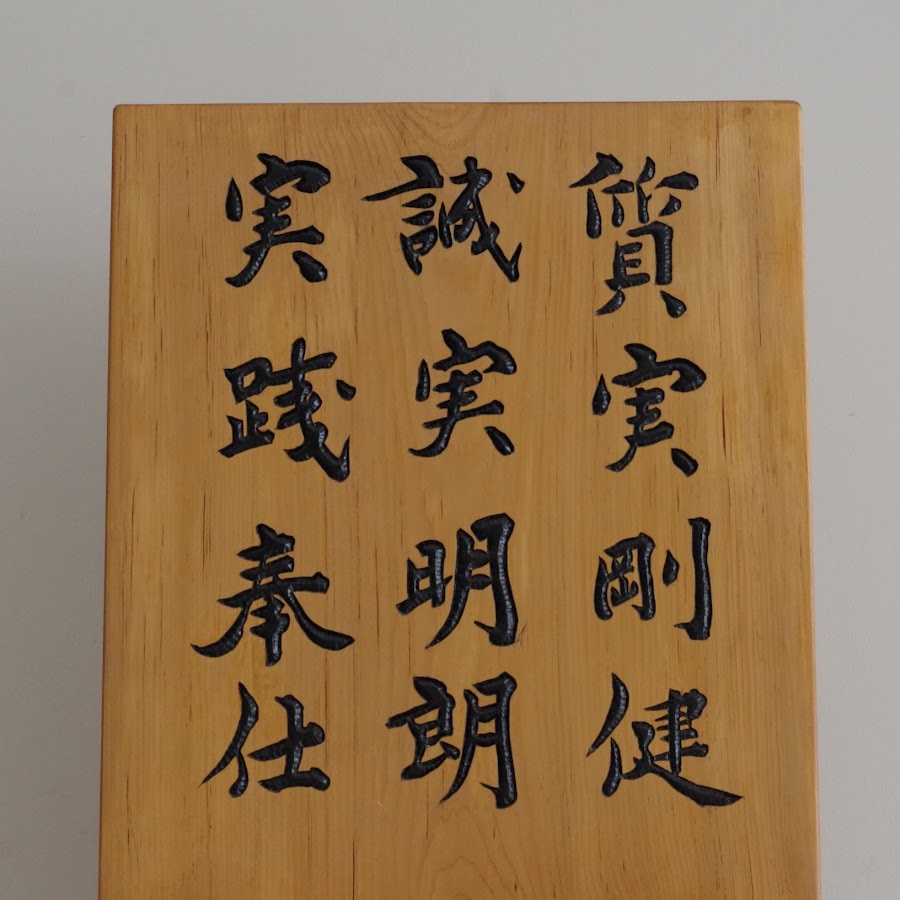 質実剛健
誠実明朗
実践奉仕